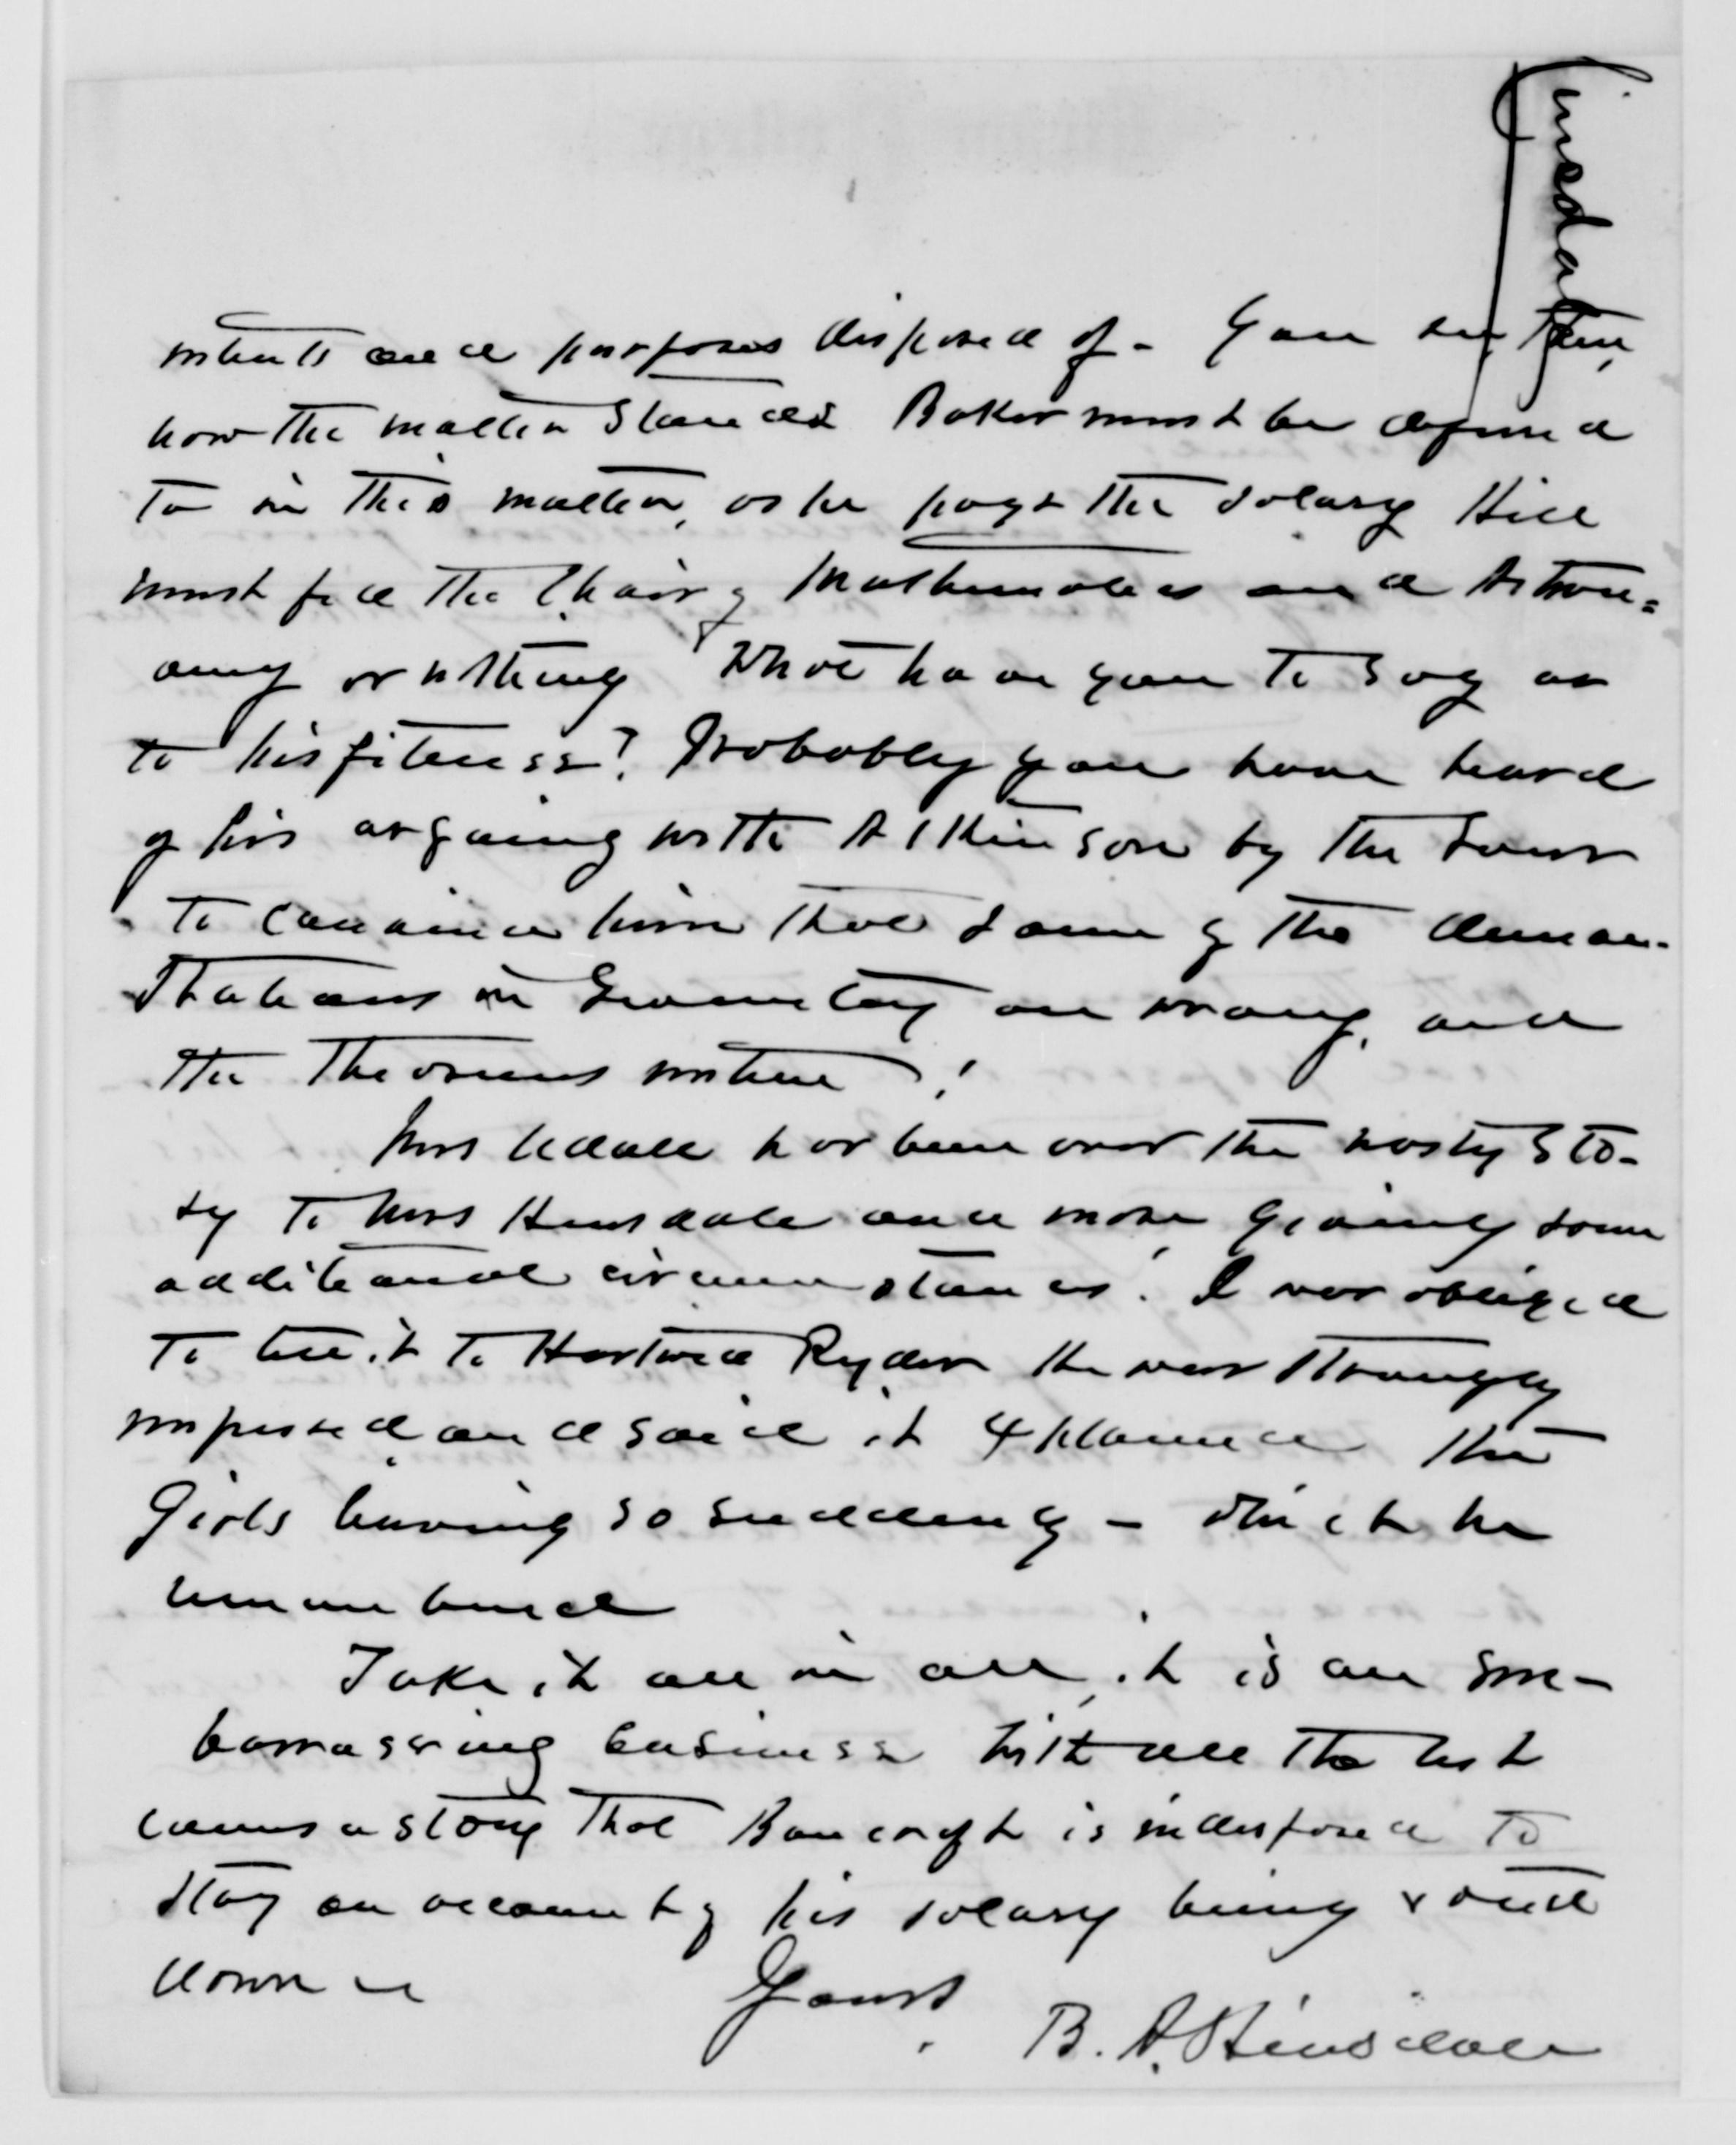 Hinsdale
intents and purposes disposed of – You see, then,
how the matter stands Baker must be deferred
to in this matter, as he pays the salary Hill
must fill the Chair of Mathematics and Astron=
omy or nothing What have you to say as
to his fitness? Probably you have heard
of his arguing with Atkinson by the hour
to convince him that some of the demon-
strations in Geometry are wrong, and
the Theorems untrue!
Mrs Udall has been over the nasty sto-
ry to Mrs Hinsdale once more giving some
additional circumstances. I was obliged
to tell it to Hartwell Ryder He was strongly
impressed and said it explained the
Girls leaving so suddenly – which he
remembered
Take it all in all, it is an em-
barrassing business With all the rest
comes a story that Bancroft is indisposed to
stay on account of his salary being voted
down
Yours,
B. A. Hinsdale